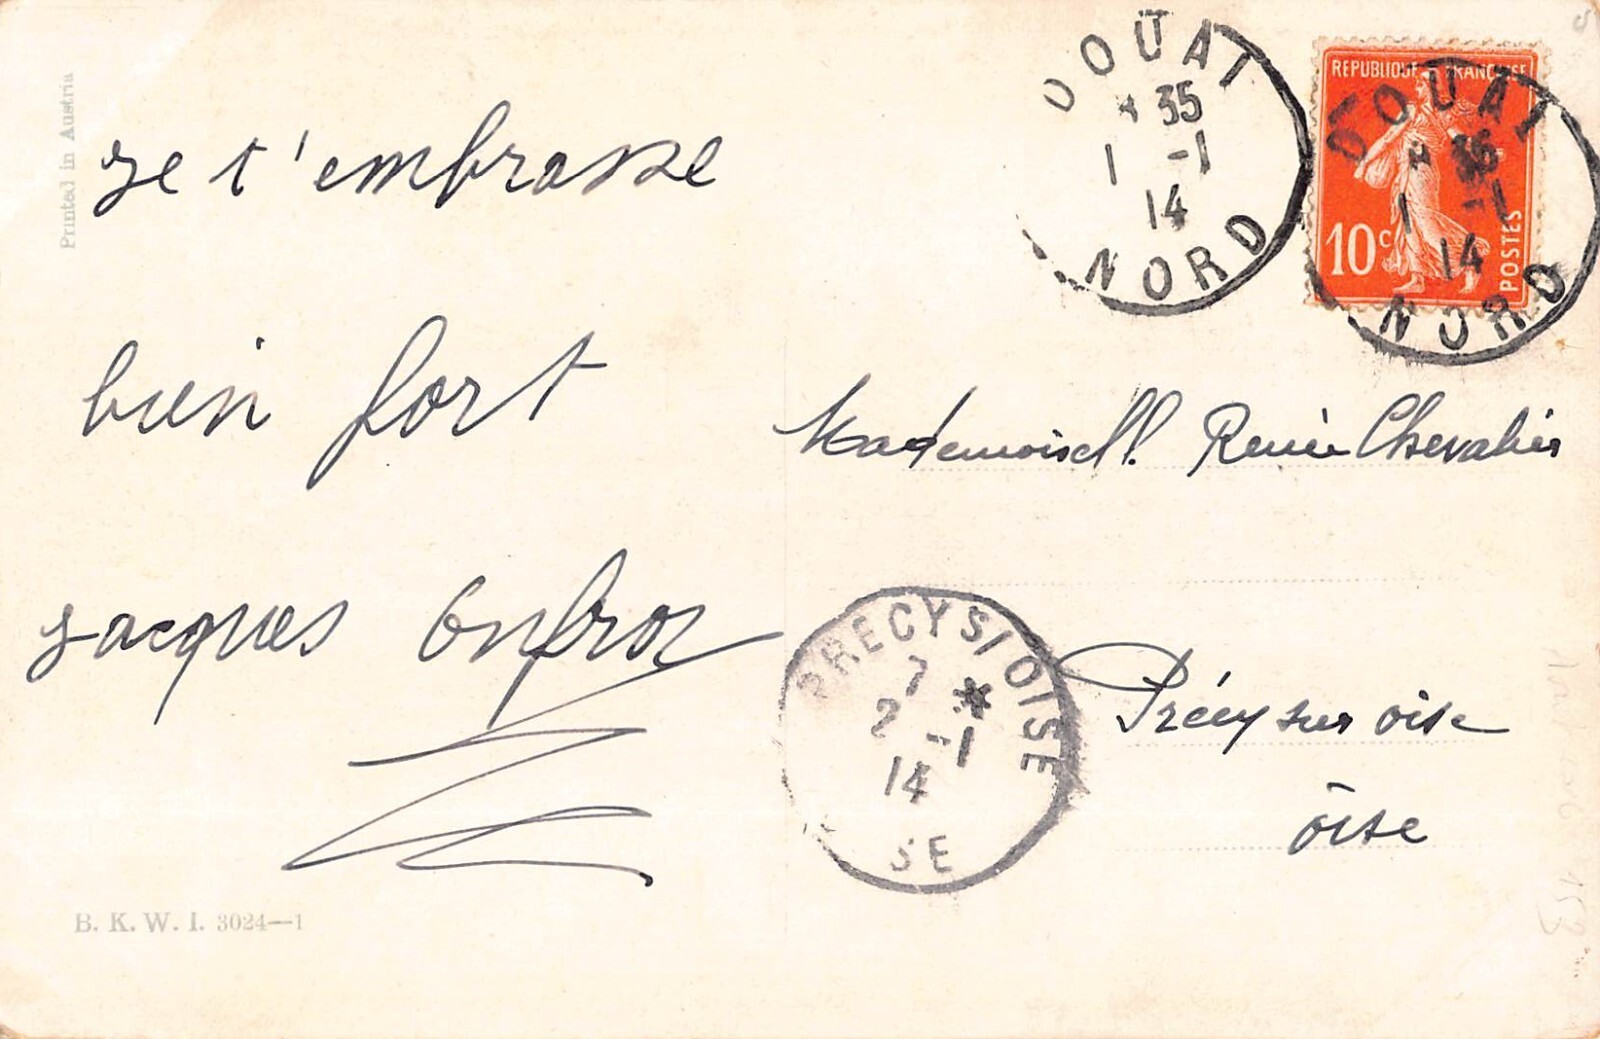 Printed in Austria
je t'embrasse
bien fort
Jacques Onfroy
B. K. W. I. 3024—1
DOUAI
* 35
1 -1
14
NORD
REPUBLIQUE FRANÇAISE
10c
POSTES
DOUAI
* 35
1 -1
14
NORD
Mademoisell. Renée Chevalier
PRECY S/ OISE
7 *
2 -1
14
SE
Précy sur oise
oise